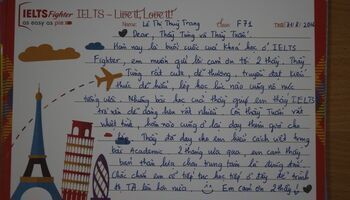 IELTS Fighter
as easy as pie
IELTS - Live it, Love it!
Name: Lê Thị Thuỳ Trang Class: F71
Dear, Thầy Tùng và Thầy Tuấn.
Hôm nay là buổi cuối cùng khoá học ở IELTS
Fighter, em muốn gửi lời cảm ơn tới 2 thầy. Thầy
Tùng rất cute, dễ thương, truyền đạt kiến
thức dễ hiểu, lớp học lúc nào cũng nô nức
tiếng cười. Những bài học của thầy giúp em thấy IELTS
trở nên dễ dàng hơn rất nhiều. Còn thầy Tuấn rất
nhiệt tình, hôm nào cũng ở lại dạy thêm giờ cho
lớp. Thầy đã dạy cho em hiểu cách viết trong
bài Academic. 2 tháng vừa qua, em cảm thấy
bản thân lựa chọn trung tâm là đúng đắn.
Chắc chắn em sẽ tiếp tục học tiếp ở đây để trình
độ TA lên hơn nữa. Em cảm ơn 2 thầy!